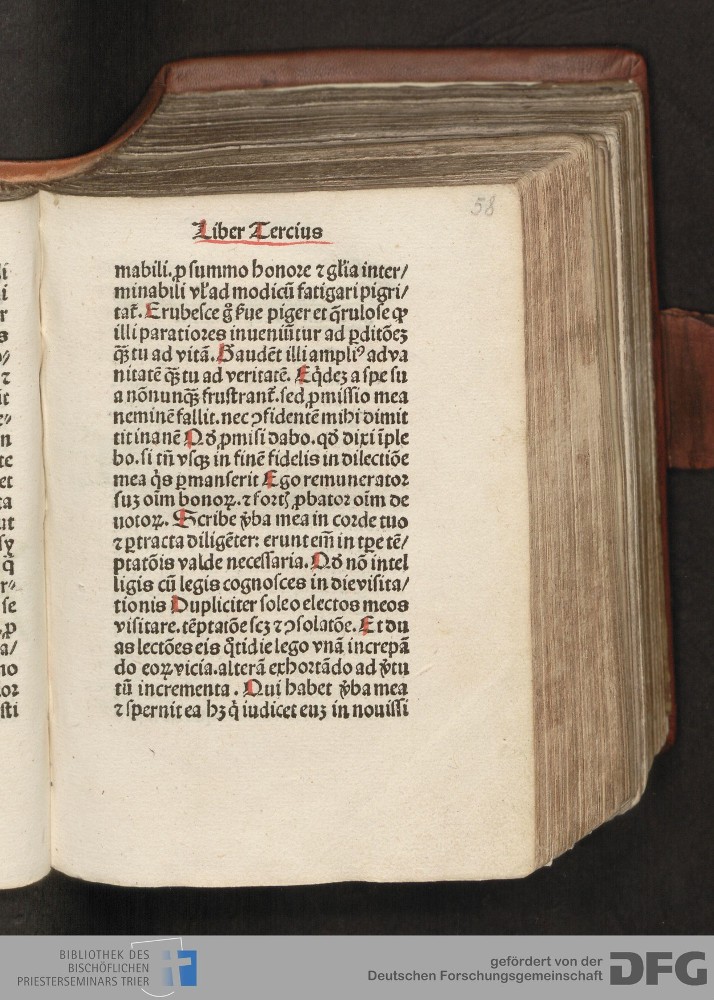 58
Liber Tercius
mabili. ꝓ summo honore ⁊ gl̄ia inter/
minabili vl̓ ad modicū fatigari pigri/
tat̄. Erubesce gͦ ẜue piger et q̄rulose ꝙ
illi paratiores inueniūtur ad ꝑditōeꝫ
qꝫ̄ tu ad vitā. Gaudēt illi ampliꝰ ad va
nitatē qꝫ̄ tu ad veritatē. Eqͥdeꝫ a spe su
a nōnunqꝫ̄ frustrant̄. sed ꝓmissio mea
neminē fallit. nec ꝯfidentē mihi dimit
tit inanē Qd̓ ꝓmisi dabo. qd̓ dixi īple
bo. si tn̄ vsqꝫ in finē fidelis in dilectiōe
mea qͥs ꝑmanserit Ego remunerator
suꝫ oīm bonoꝝ. ⁊ fortꝭ ꝓbator oīm de
uotoꝝ. Scribe v̓ba mea in corde tuo
⁊ ꝑtracta diligēter: erunt em̄ in tꝑe tē/
ptatōis valde necessaria. Qd̓ nō intel
ligis cū legis cognosces in die visita/
tionis Dupliciter soleo electos meos
visitare. tēptatōe scꝫ ⁊ ꝯsolatōe. Et du
as lectōes eis qͦtidie lego vnā increpā
do eoꝝ vicia. alterā exhortādo ad v̓tu
tū incrementa. Qui habet v̓ba mea
⁊ spernit ea hꝫ qͥ iudicet euꝫ in nouissi
BIBLIOTHEK DES
BISCHÖFLICHEN
PRIESTERSEMINARS TRIER
gefördert von der
Deutschen Forschungsgemeinschaft
DFG